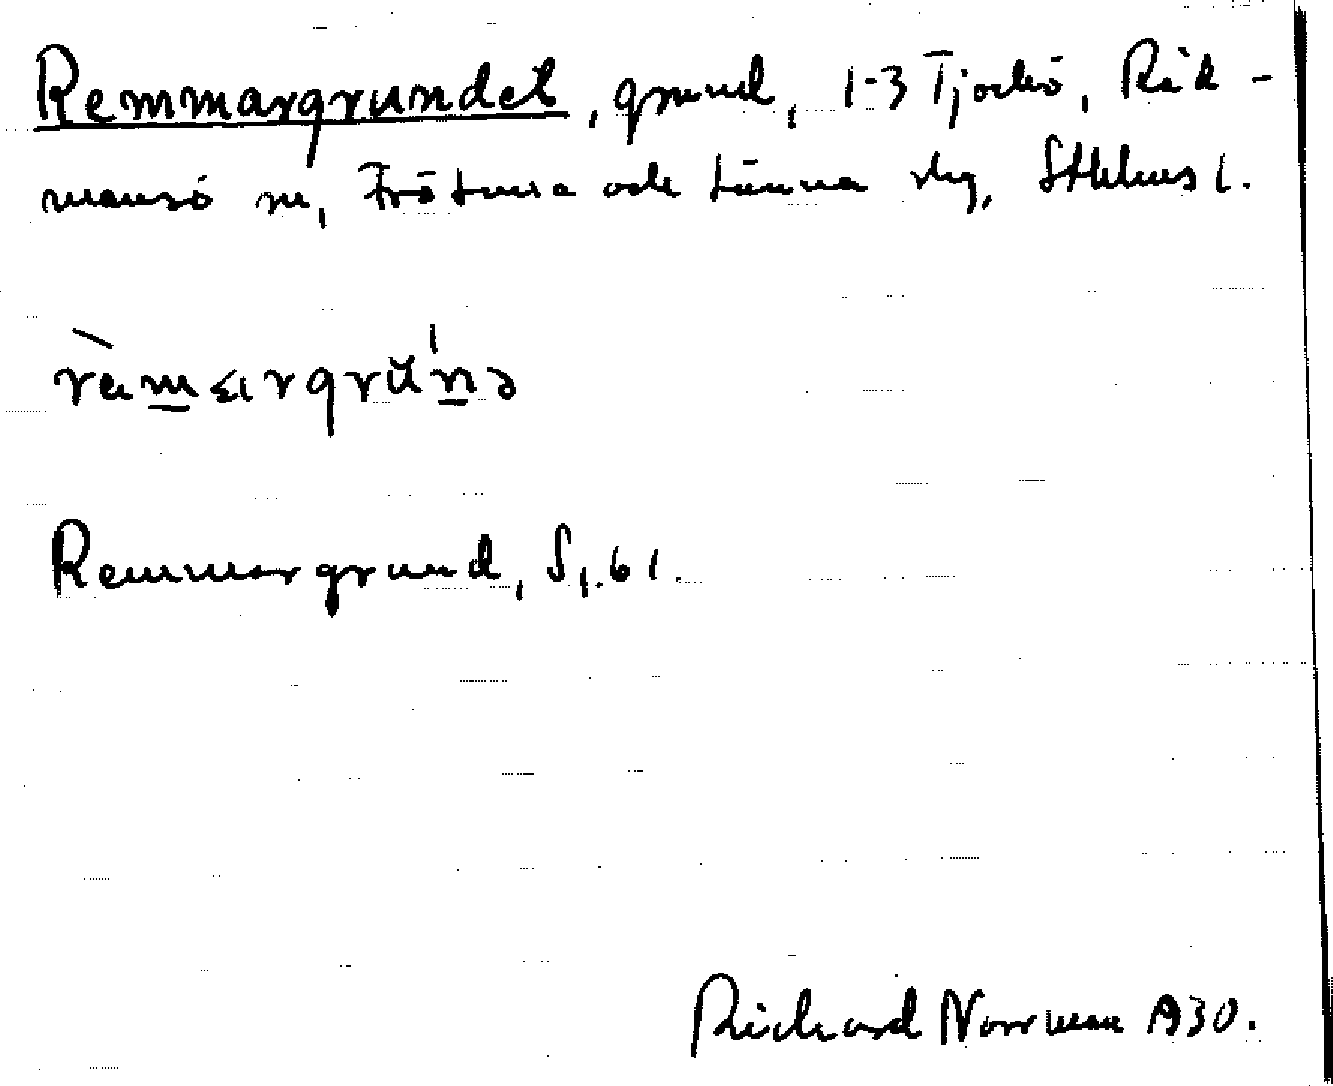 Remmargrundet, grund, 1-3 Tjockö, Räd-
mansö sn, Frötuna och Länna skg, Sthlms l.
Remmargrund, S1.61.
Richard Norrman 1930.